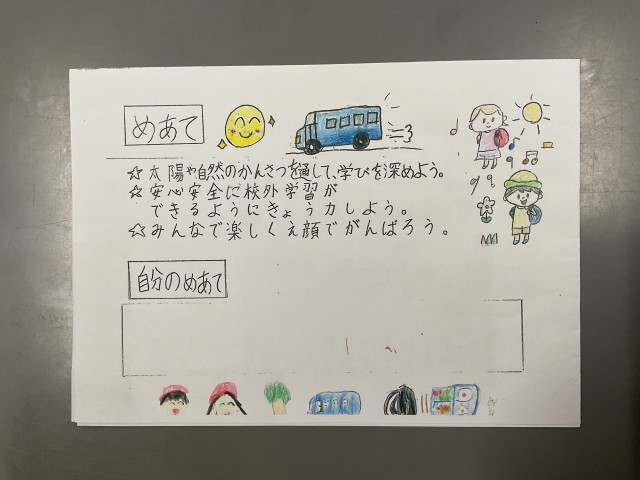 めあて
☆太陽や自然のかんさつを通して、学びを深めよう。
☆安心安全に校外学習が
できるようにきょう力しよう。
☆みんなで楽しくえ顔でがんばろう。
自分のめあて